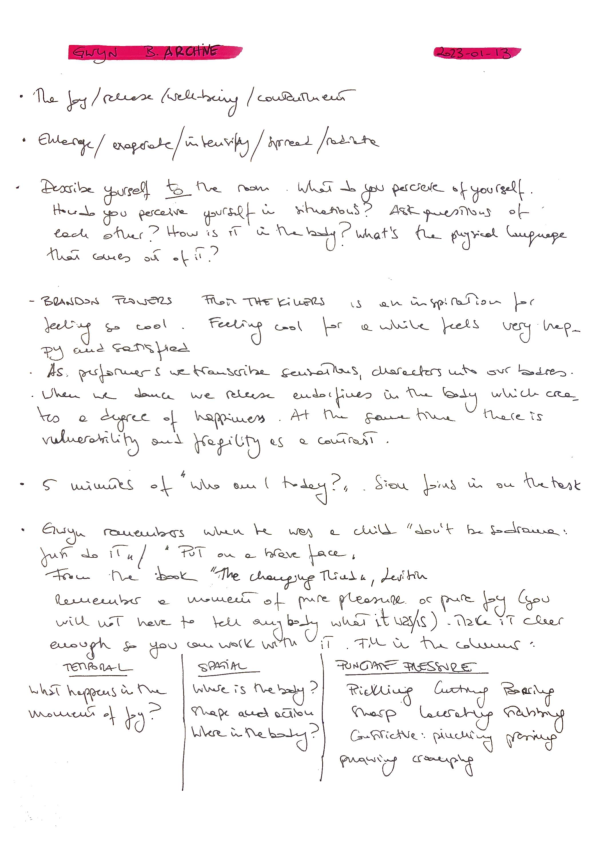 GWYN B. ARCHIVE 2023-01-13
• The Joy/release/well-being/contentment
• Enlarge/exagerate/intensify/spread/radiate
• Describe yourself to the room. What do you percieve of yourself.
How do you perceive yourself in situations? Ask questions of
each other? How is it in the body? What's the physical language
that comes out of it?
- BRANDON FLOWERS FROM THE KILLERS is an inspiration for
feeling so cool. Feeling cool for a while feels very hap-
py and satisfied
• As performers we transcribe sensations, characters into our bodies.
• When we dance we release endorfines in the body which crea-
tes a degree of happiness. At the same time there is
vulnerability and fragility as a contrast.
• 5 minutes of "Who am I today?". Sion joins in on the task
• Gwyn remembers when he was a child "don't be so drama:
Just do it"/ "Put on a brave face"
From the book "The changing Mind", Levitin
Remember a moment of pure pleasure or pure joy (you
will not have to tell anybody what it was/is). Make it clear
enough so you can work with it. Fill in the columns:
TEMPORAL SPATIAL PUNCTATE PRESSURE
What happens in the Where is the body? Prickling Cutting Boaring
moment of joy? Shape and action Sharp lacerating stabbing
Where in the body? Constrictive: pinching pressing
gnawing cramping